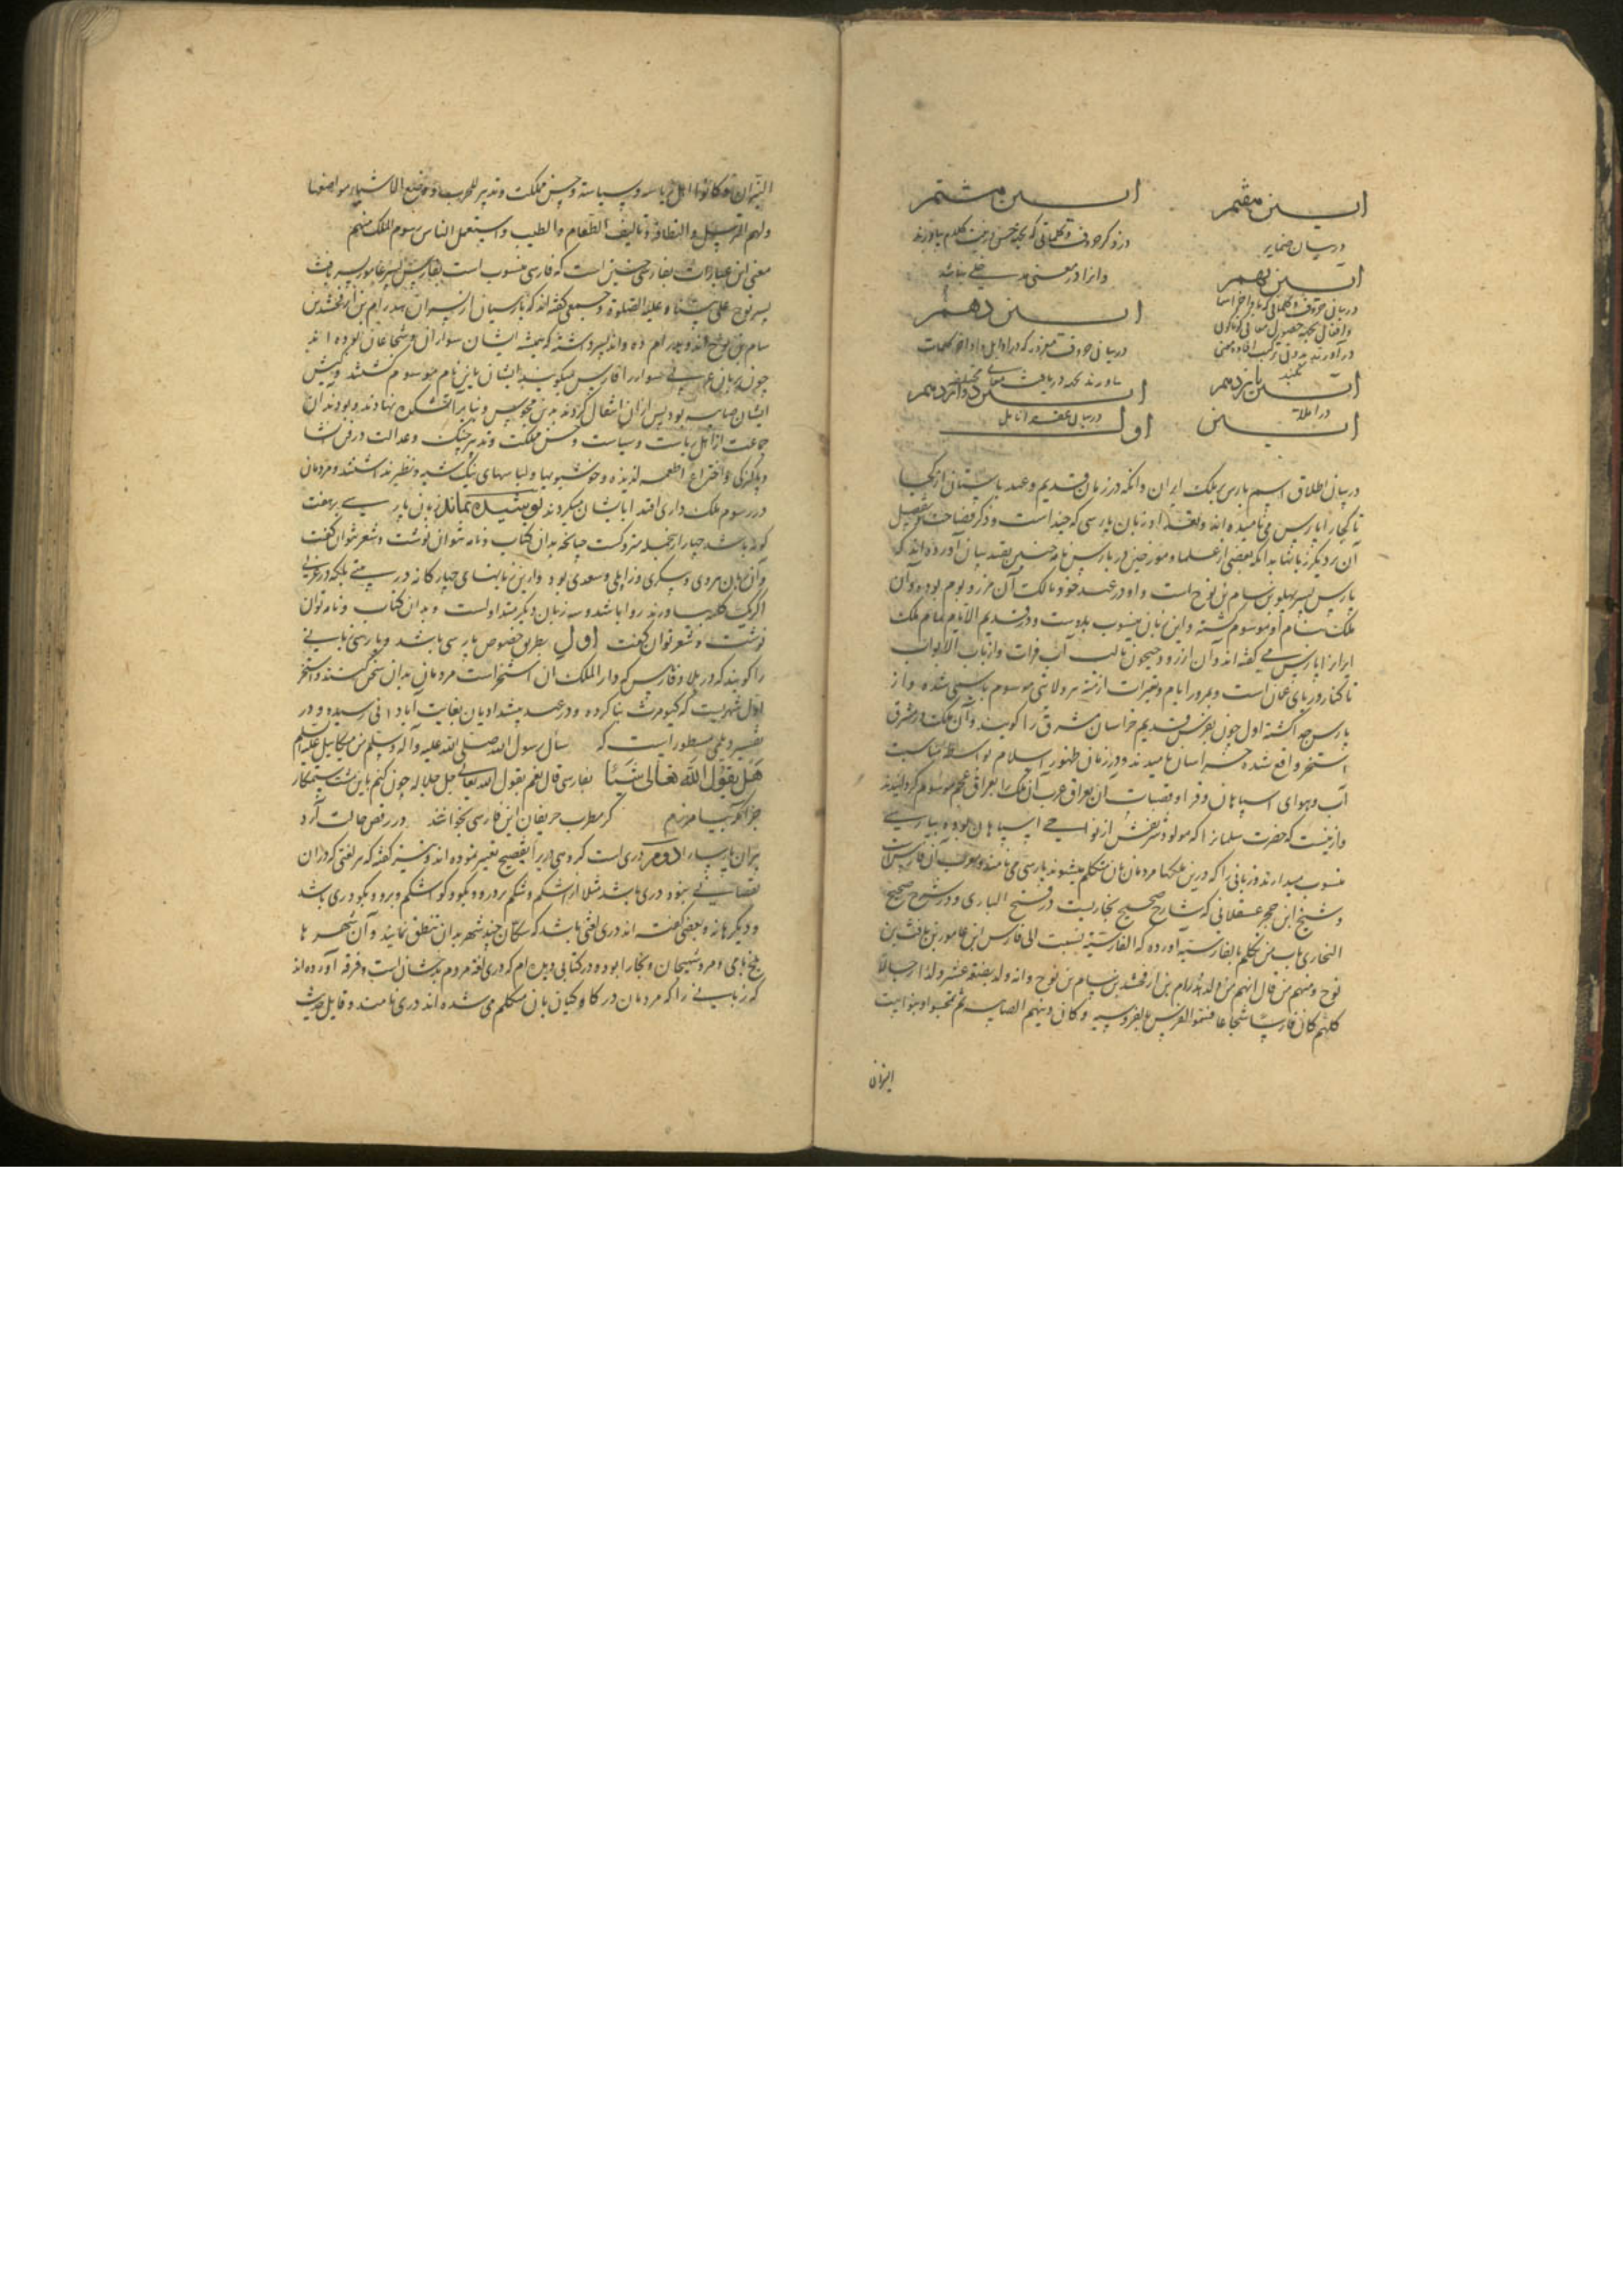 آیین هفتم
آیین هشتم
در بیان ضمایر
در ذکر حروف و کلماتی که بجهة حسن و زینت کلام بیاورند
و آنرا در معنی مدخلی نباشد
آیین نهم
آیین دهم
در بیان حروف و کلماتی که باواخر اسما
و افعال بجهة حصول معانی گوناگون
در بیان حروف مفرده که در اوایل و اواخر کلمات
بیاورند بجهة دریافت معانی مختلفه
آیین یازدهم
آیین دوازدهم
در املا
در بیان عقد انامل
آیین اول
در بیان اطلاق اسم پارس بر ملک ایران و آنکه در زمان قدیم و عهد باستان از کجا
تا کجا را پارس می نامیده اند و لغت و زبان پارسی که چند است و ذکر فصاحت و تفضیل
آن بر دیگر زبانها بدانکه بعضی از علما و مورخین در پارس نامه چنین بقید بیان آورده اند که
پارس پسر پهلو بن سام بن نوح است و او در عهد خود مالک آن مرز و بوم بوده و آن
ملک بنام او موسوم گشته و این زبان منسوب بدوست و در قدیم الایام تمام ملک
ایرانرا پارس می گفته اند و آن از رود جیحون تا لب آب فرات و از باب الابواب
تا کنار دریای عمان است و بمرور ایام و تغیرات ازمنه هر ولایتی موسوم باسمی شده و از
پارس جدا گشته اول چون بفرس قدیم خراسان مشرق را گویند و آن ملک در مشرق
استخر واقع شده خراسان نامیدند و در زمان ظهور اسلام بواسطه مناسبت
آب و هوای اسپاهان و قرا و قصبات آن بعراق عرب آن ملک را بعراق عجم موسوم گردانیدند
و ازینست که حضرت سلمانرا که مولود شریفش از نواحی اسپاهان بوده بپارسی
منسوب میدارند و زبانی را که درین ملکها مردمان بآن متکلم میشوند پارسی می نامند و معرب آن فارسیست
و شیخ ابن حجر عسقلانی که شارح صحیح بخاریست در فتح الباری در شرح صحیح
البخاری باب من تکلم بالفارسیه آورده که الفارسیة نسبت الی فارس ابن عامور بن یافث بن
نوح و منهم من قال انهم من ولد هدرام بن ارفخشد بن سام بن نوح و انه ولد بضعة عشر ولدا رجالا
کلهم کان فارسا شجاعا فسموا الفرس بالفروسیة و کان دینهم الصابیه ثم تمجسوا و بنوا بیت
النیران
النیران و کانوا اهل ریاسة و سیاسة و حسن مملکت و تدبیر للحرب و وضع الاشیاء مواضعها
و لهم الترسل و النظافة و تالیف الطعام و الطیب و استعمل الناس رسوم الملک منهم
معنی این عبارات بفارسی چنین است که فارسی منسوب است بفارس پسر عامور پسر یافث
پسر نوح علی نبینا و علیه الصلوة و جمعی گفته اند که پارسیان از پسران هدرام بن ارفخشد بن
سام بن نوح اند و هدرام ده و اند پسر داشته که همه ایشان سواران و شجاعان بوده اند
چون بزبان عربی سوار را فارس میگویند ایشان باین نام موسوم گشتند و کیش
ایشان صابیه بود پس از آن انتقال کردند بدین مجوس و بنای آتشکده نهادند و بودند آن
جماعت از اهل ریاست و سیاست و حسن مملکت و تدبیر جنگ و عدالت
و پاکیزگی و اختراع اطعمه لذیذه و خوشبویها و لباسهای نیک شبیه و نظیر نداشتند و مردمان
در رسوم ملک داری اقتدا بایشان میکردند پوشیده نماند زبان پارسی بر هفت
گونه باشد چهار از جمله متروکست چنانچه بدان کتاب و نامه نتوان نوشت و شعر نتوان گفت
و آن زبان هروی و سکزی و زاولی و سغدی بود و ازین زبانهای چهارگانه در بیتی بلکه در غزلی
اگر یک کلمه بیاورند روا باشد و سه زبان دیگر متداولست و بدان کتاب و نامه توان
نوشت و شعر توان گفت اول بطریق خصوص پارسی باشد و پارسی زبانی
را گویند که در بلاد فارس که دار الملک آن استخر است مردمان بدان سخن کنند و استخر
اول شهریست که کیومرث بنا کرده و در عهد پیشدادیان بغایت آبادانی رسیده و در
تفسیر دیلمی مسطور است که سأل رسول الله صلی الله علیه و آله و سلم من میکاییل علیه السلم
هل یقول الله تعالی شیئا بفارسی قال نعم یقول الله تعالی جل جلاله چون کنم با این مشت ستمکار
جز آنکه بیامرزم گر مطرب حریفان این فارسی بخواند در رقص حالت آرد
پیران پارسا را دوم دری است گروهی دریرا بفصیح تعبیر نموده اند و نیز گفته که هر لغتی که در آن
نقصانی نبود دری باشد مثلا از اشکم و شکم و برو و رو و بگو و گو اشکم و برو و بگو دری باشد
و دیگرها نه و بعضی گفته اند دری لغتی باشد که سکان چند شهر بدان تنطق نمایند و آن شهرها
بلخ بامی و مرو شهیجان و بخارا بود و در کتابی دیده ام که دری لغة مردم بدخشان است و فرقه آورده اند
که زبانی را که مردمان درگاه کیان بآن متکلم می شده اند دری نامند و قایل حدیث